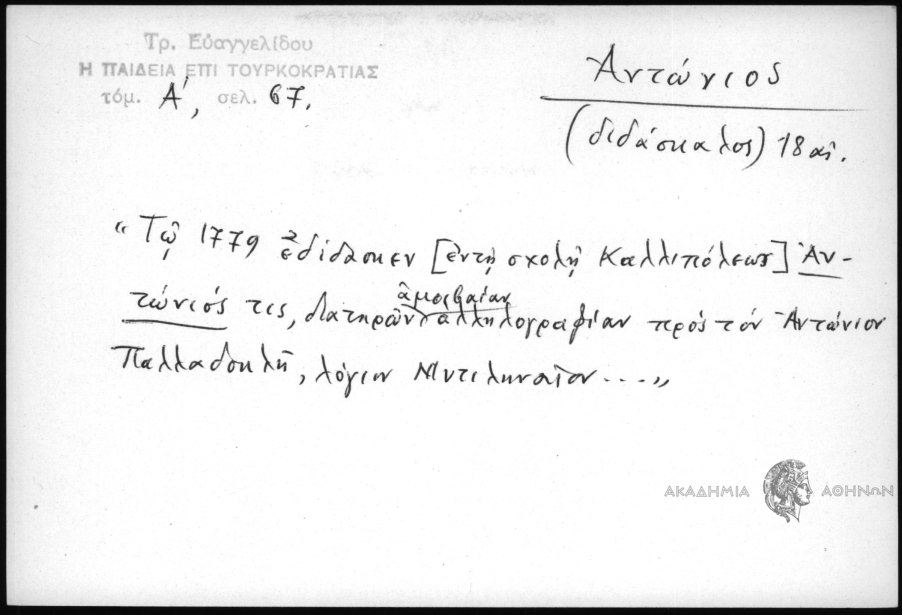 Τρ. Εὐαγγελίδου
Η ΠΑΙΔΕΙΑ ΕΠΙ ΤΟΥΡΚΟΚΡΑΤΙΑΣ
τόμ. Α', σελ. 67.
Ἀντώνιος
(διδάσκαλος) 18 αἰ.
“Τῷ 1779 ἐδίδασκεν [ἐν τῇ σχολῇ Καλλιπόλεως] Ἀν-
τώνιός τις, διατηρῶν ἀμοιβαίαν ἀλληλογραφίαν πρὸς τὸν Ἀντώνιον
Παλλαδοκλῆ, λόγιον Μυτιληναῖον....„
ΑΚΑΔΗΜΙΑ ΑΘΗΝΩΝ